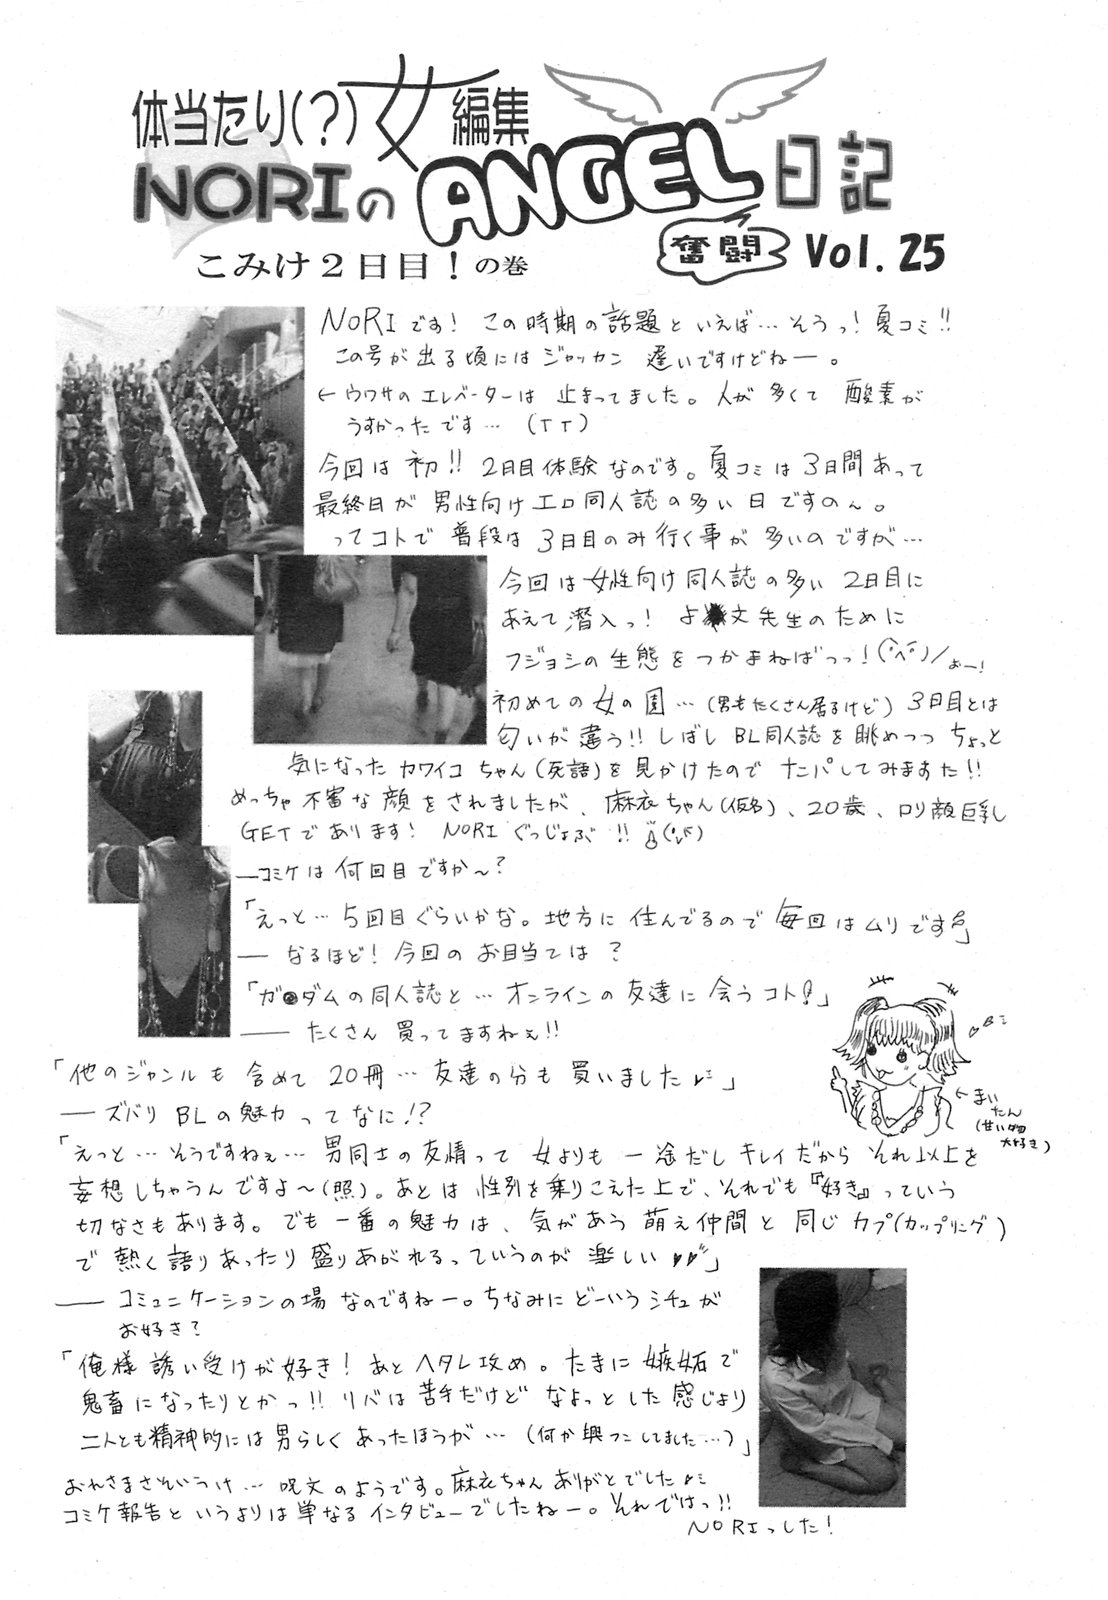 体当たり(?)女編集
NORIのANGEL日記
奮闘 Vol.25
こみけ2日目!の巻
NORIです! この時期の話題といえば…そうっ!夏コミ!!
この号が出る頃にはジャッカン 遅いですけどねー。
←ウワサのエレベーターは 止まってました。人が多くて 酸素が
うすかったです…(TT)
今回は初!!2日目体験なのです。夏コミは3日間あって
最終日が 男性向けエロ同人誌の多い日ですのん。
ってコトで 普段は3日目のみ行く事が多いのですが…
今回は女性向け同人誌の多い 2日目に
あえて潜入っ! よ文先生のために
フジョシの生態をつかまねばっっ!(^^)/ぉー!
初めての女の園…(男もたくさん居るけど) 3日目とは
匂いが違う!!しばしBL同人誌を眺めつつ ちょっと
気になったカワイコちゃん(死語)を見かけたのでナンパしてみますた!!
めっちゃ不審な顔をされましたが、麻衣ちゃん(仮名)、20歳、ロリ顔巨乳
GETであります! NORIぐっじょぶ!!
―コミケは何回目ですか〜?
「えっと…5回目ぐらいかな。地方に住んでるので毎回はムリです」
―なるほど!今回のお目当ては?
「ガ●ダムの同人誌と…オンラインの友達に会うコト!」
―たくさん買ってますねぇ!!
「他のジャンルも含めて20冊…友達の分も買いました♪」
―ズバリBLの魅力ってなに!?
←まい
たん
(甘い物
大好き)
「えっと…そうですねぇ…男同士の友情って女よりも一途だしキレイだからそれ以上を
妄想しちゃうんですよ〜(照)。あとは性別を乗りこえた上で、それでも『好き』っていう
切なさもあります。でも一番の魅力は、気があう萌え仲間と同じカプ(カップリング)
で熱く語りあったり盛りあがれるっていうのが楽しい♥♥」
―コミュニケーションの場なのですねー。ちなみにどーいうシチュが
お好き?
「俺様誘い受けが好き!あとヘタレ攻め。たまに嫉妬で
鬼畜になったりとかっ!!リバは苦手だけどなよっとした感じより
二人とも精神的には男らしくあったほうが…(何か興フンしてました…)」
おれさまさそいうけ…呪文のようです。麻衣ちゃんありがとでした♪
コミケ報告というよりは単なるインタビューでしたねー。それではっ!!
NORIっした!